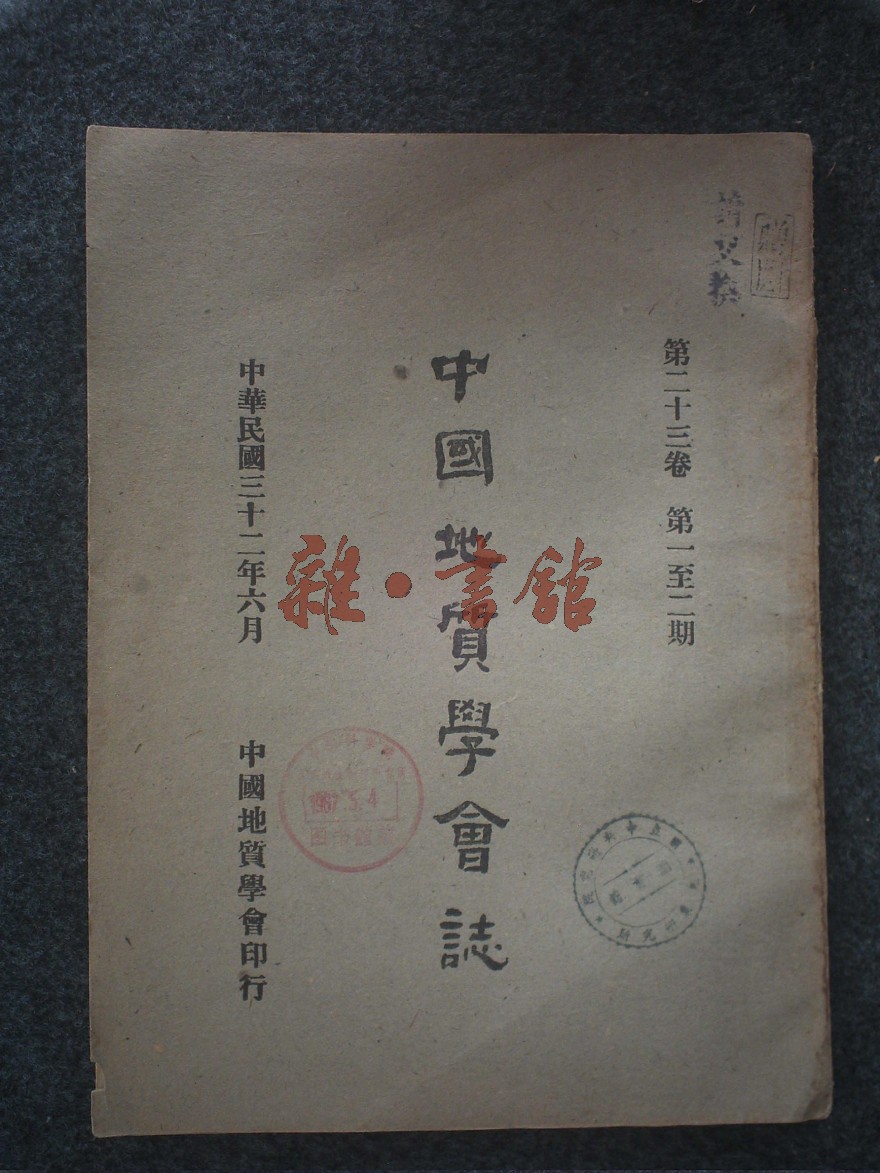 第二十三卷 第一至二期
中國地質學會誌
中華民國三十二年六月
中國地質學會印行
雜·書館
1957.5.4